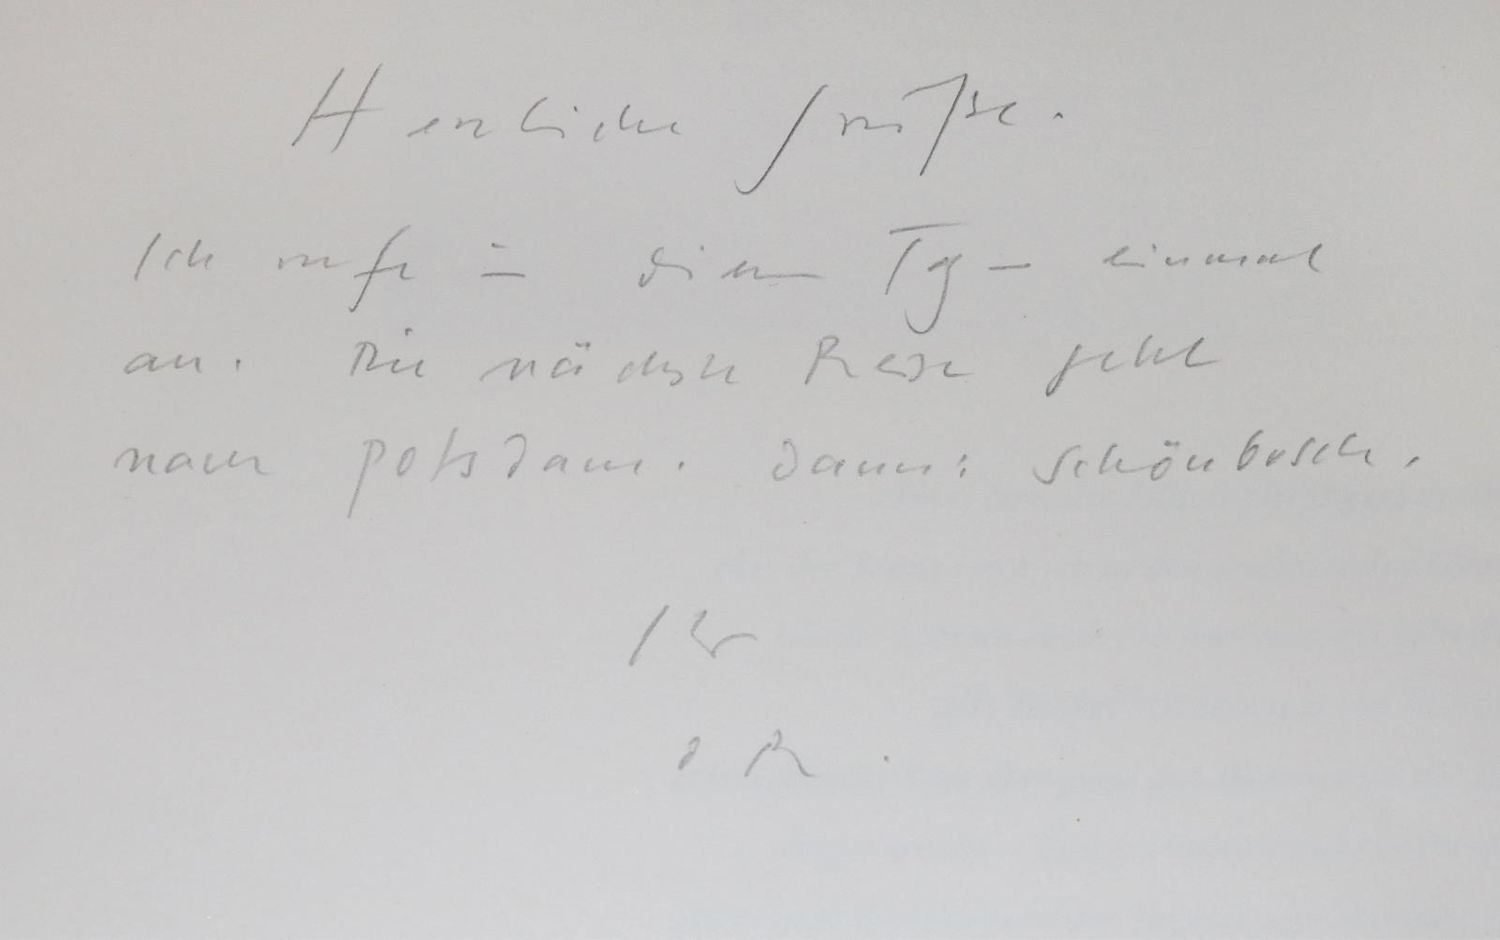 Herzliche Grüße.
Ich rufe in diesen Tagen einmal
an. Die nächste Reise geht
nach Potsdam. Dann: Schönbusch.
Ihr